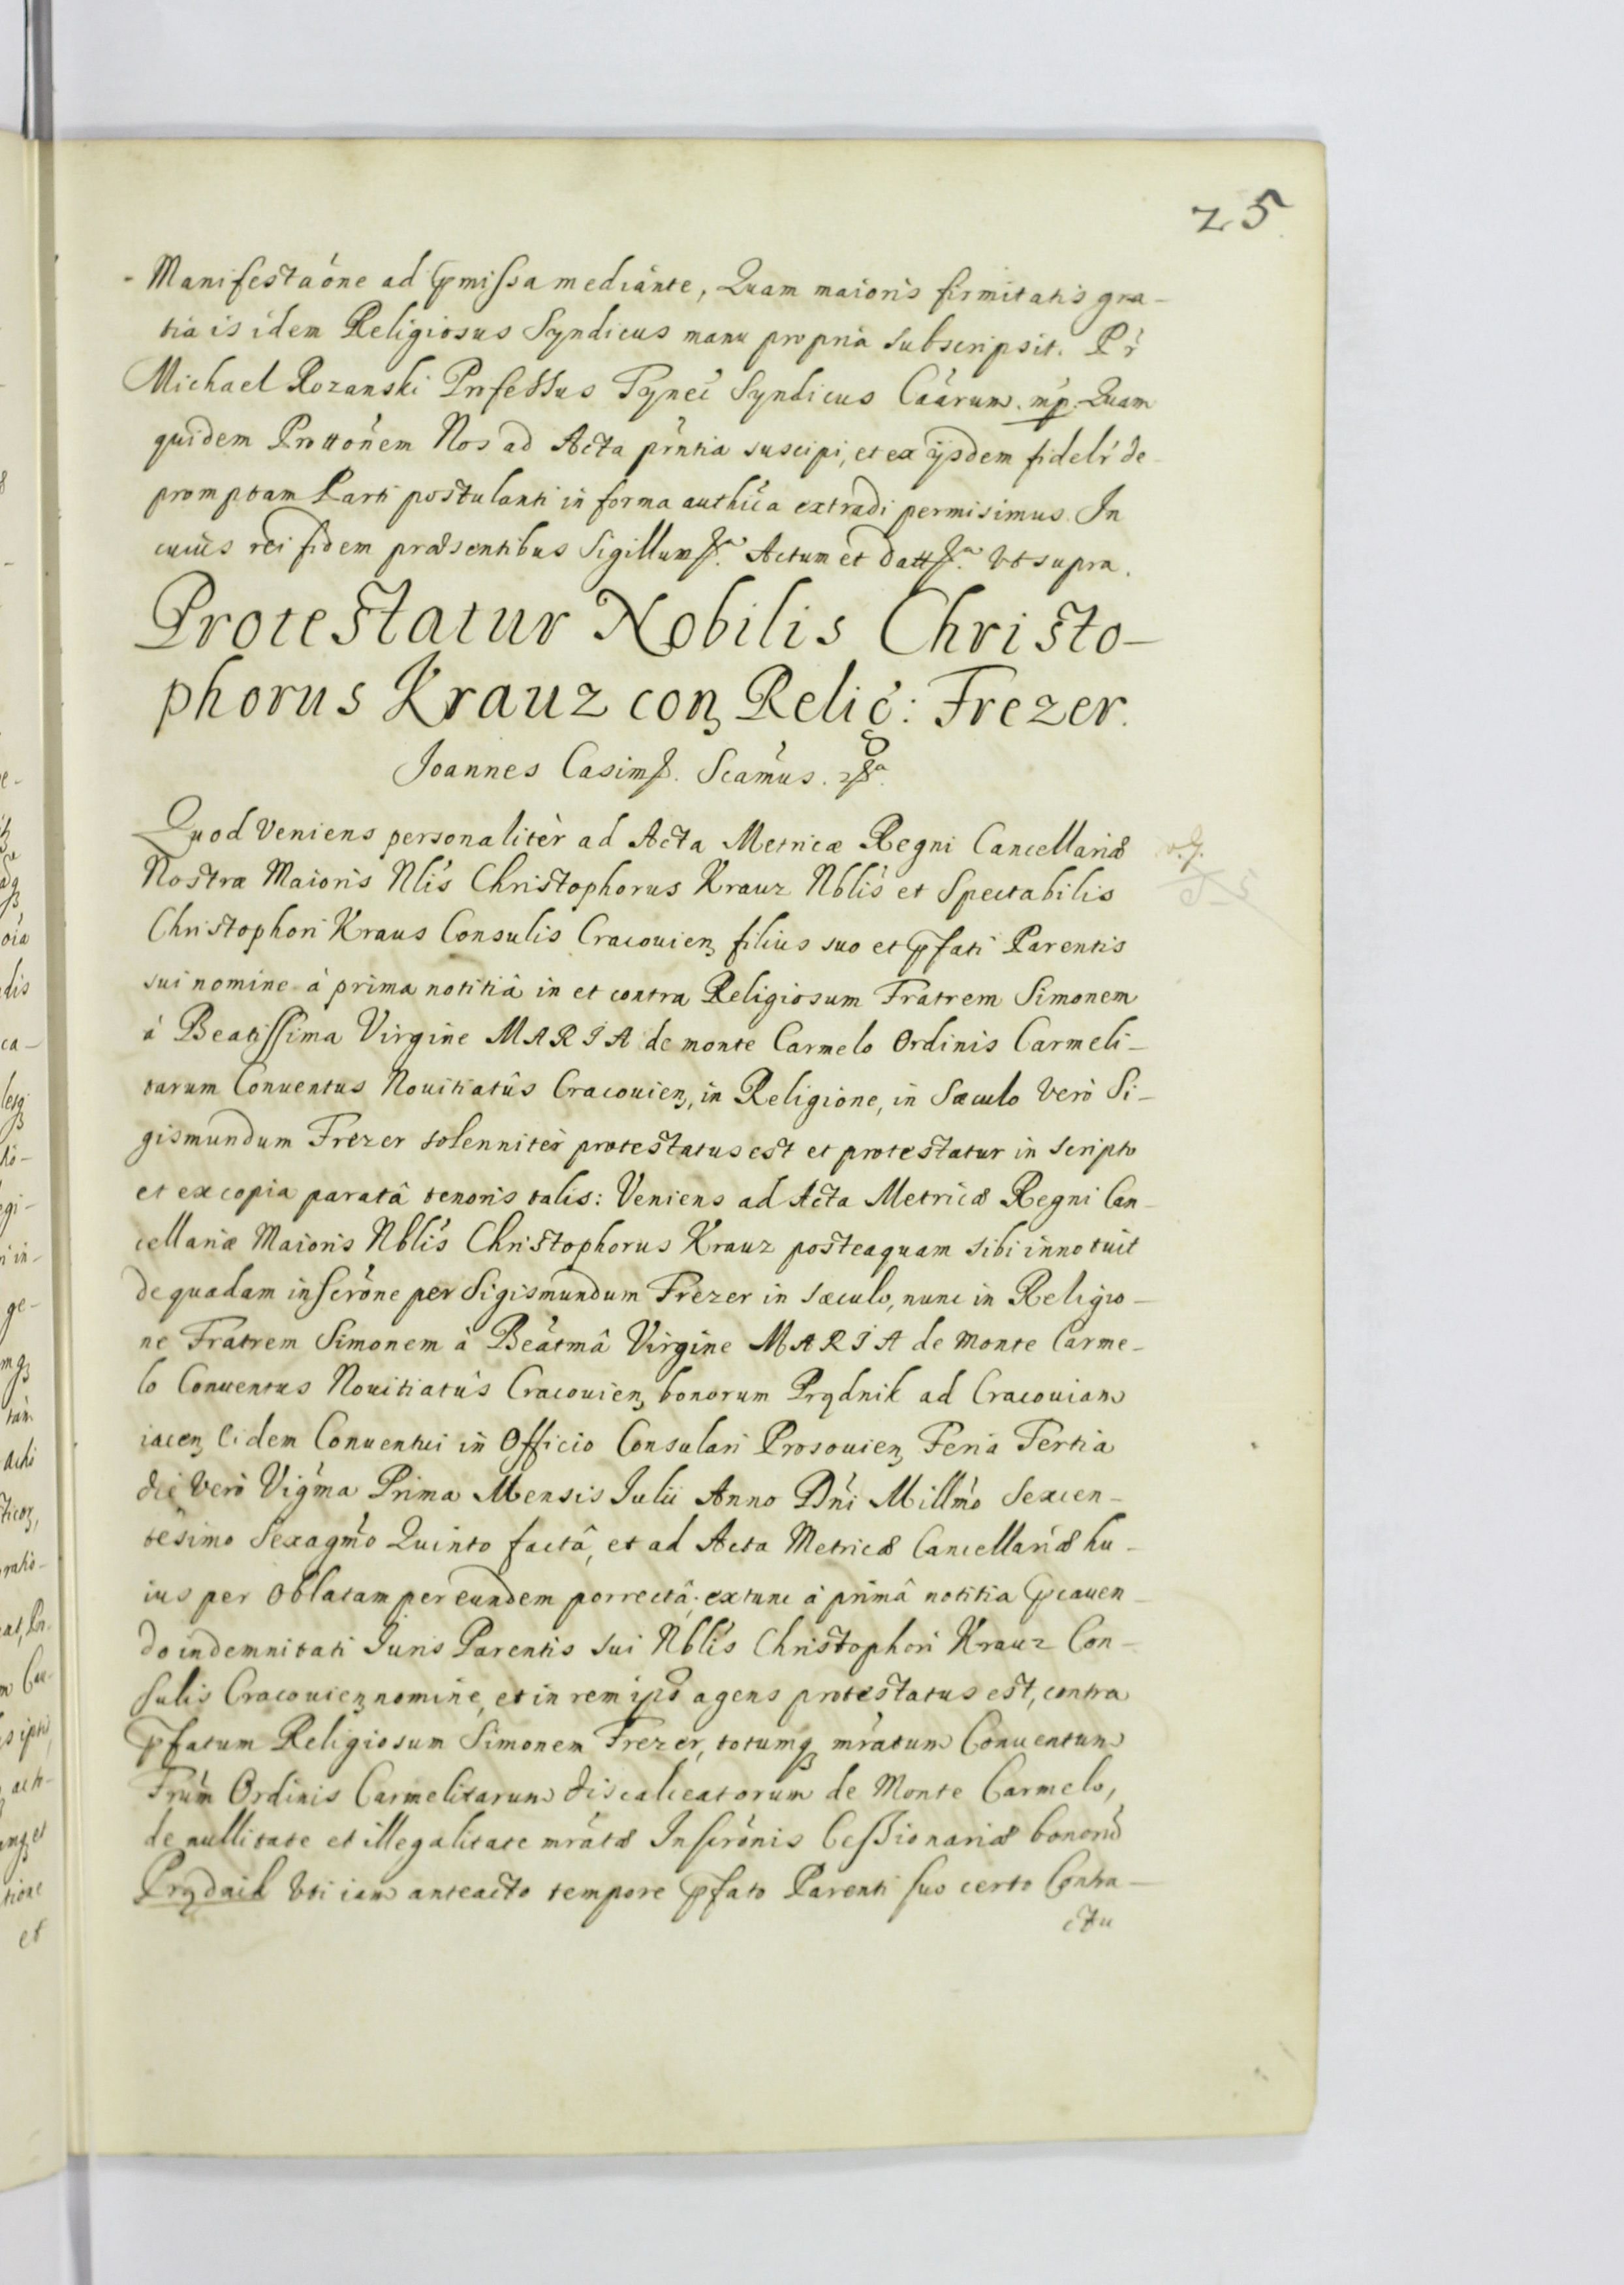 25
Manifestaóne ad p̃missa mediánte, Quam maioris firmitatis gra-
tia is idem Religiosus Syndicus manu propria subscripsit. Pr̀
Michael Rozanski Professus Tynec̀ Syndicus Caárum. mp. Quam
quidem Prottonem̀ Nos ad Acta prńtia suscipi, et ex ijsdem fidelr̀ de-
promptam Parti postulanti in forma authic̀a extradi permisimus. In
cuius rei fidem præsentibus Sigillum ꝑa. Actum et datt ꝑa. Vt supra.
Protestatur Nobilis Christo-
phorus Krauz conȝ Relig̀: Frezer.
Joannes Casimꝑ. Scamùs. ꝑa.
Quod Veniens personalitèr ad Acta Metricæ Regni Cancellariæ
Nostræ Maioris Nlis̀ Christophorus Krauz Nblis̀ et Spectabilis
Christophori Kraus Consulis Cracouienȝ filius suo et p̃fati Parentis
sui nomine à prima notitiâ in et contra Religiosum Fratrem Simonem
à Beatissima Virgine MARIA de monte Carmelo Ordinis Carmeli-
tarum Conuentus Nouitiatûs Cracouienȝ, in Religione, in Sæculo Verò Si-
gismundum Frezer solennitèr protestatus est et protestatur in scripto
et ex copia paratâ tenoris talis: Veniens ad Acta Metricæ Regni Can-
cellariæ Maioris Nblis̀ Christophorus Krauz posteaquam sibi innotuit
de quadam inscróne per Sigismundum Frezer in sæculo, nunc in Religio-
ne Fratrem Simonem à Beátmâ Virgine MARIA de Monte Carme-
lo Conuentus Nouitiatûs Cracouienȝ bonorum Prądnik ad Cracouiam
iacenȝ Eidem Conuentui in Officio Consulari Prosouienȝ Feria Tertia
die Verò Vigm̀a Prima Mensis Iulii Anno Dńi Millmò Sexcen-
tesimo Sexagmò Quinto factâ, et ad Acta Metricæ Cancellariæ hu-
ius per Oblatam per eundem porrectâ; extunc à primâ notitia p̃cauen-
do indemnitati Iuris Parentis sui Nblis̀ Christophori Krauz Con-
sulis Cracouienȝ nomine, et in rem ipsò agens protestatus est, contra
p̃fatum Religiosum Simonem Frezer, totumqȝ mrátum Conuentum
Frum̀ Ordinis Carmelitarum discalceatorum de Monte Carmelo,
de nullitate et illegalitate mrátæ Inscrónis Cessionariæ bonorũ
Prądnik Vti iam anteacto tempore p̃fato Parenti suo certo Contra-
ctu